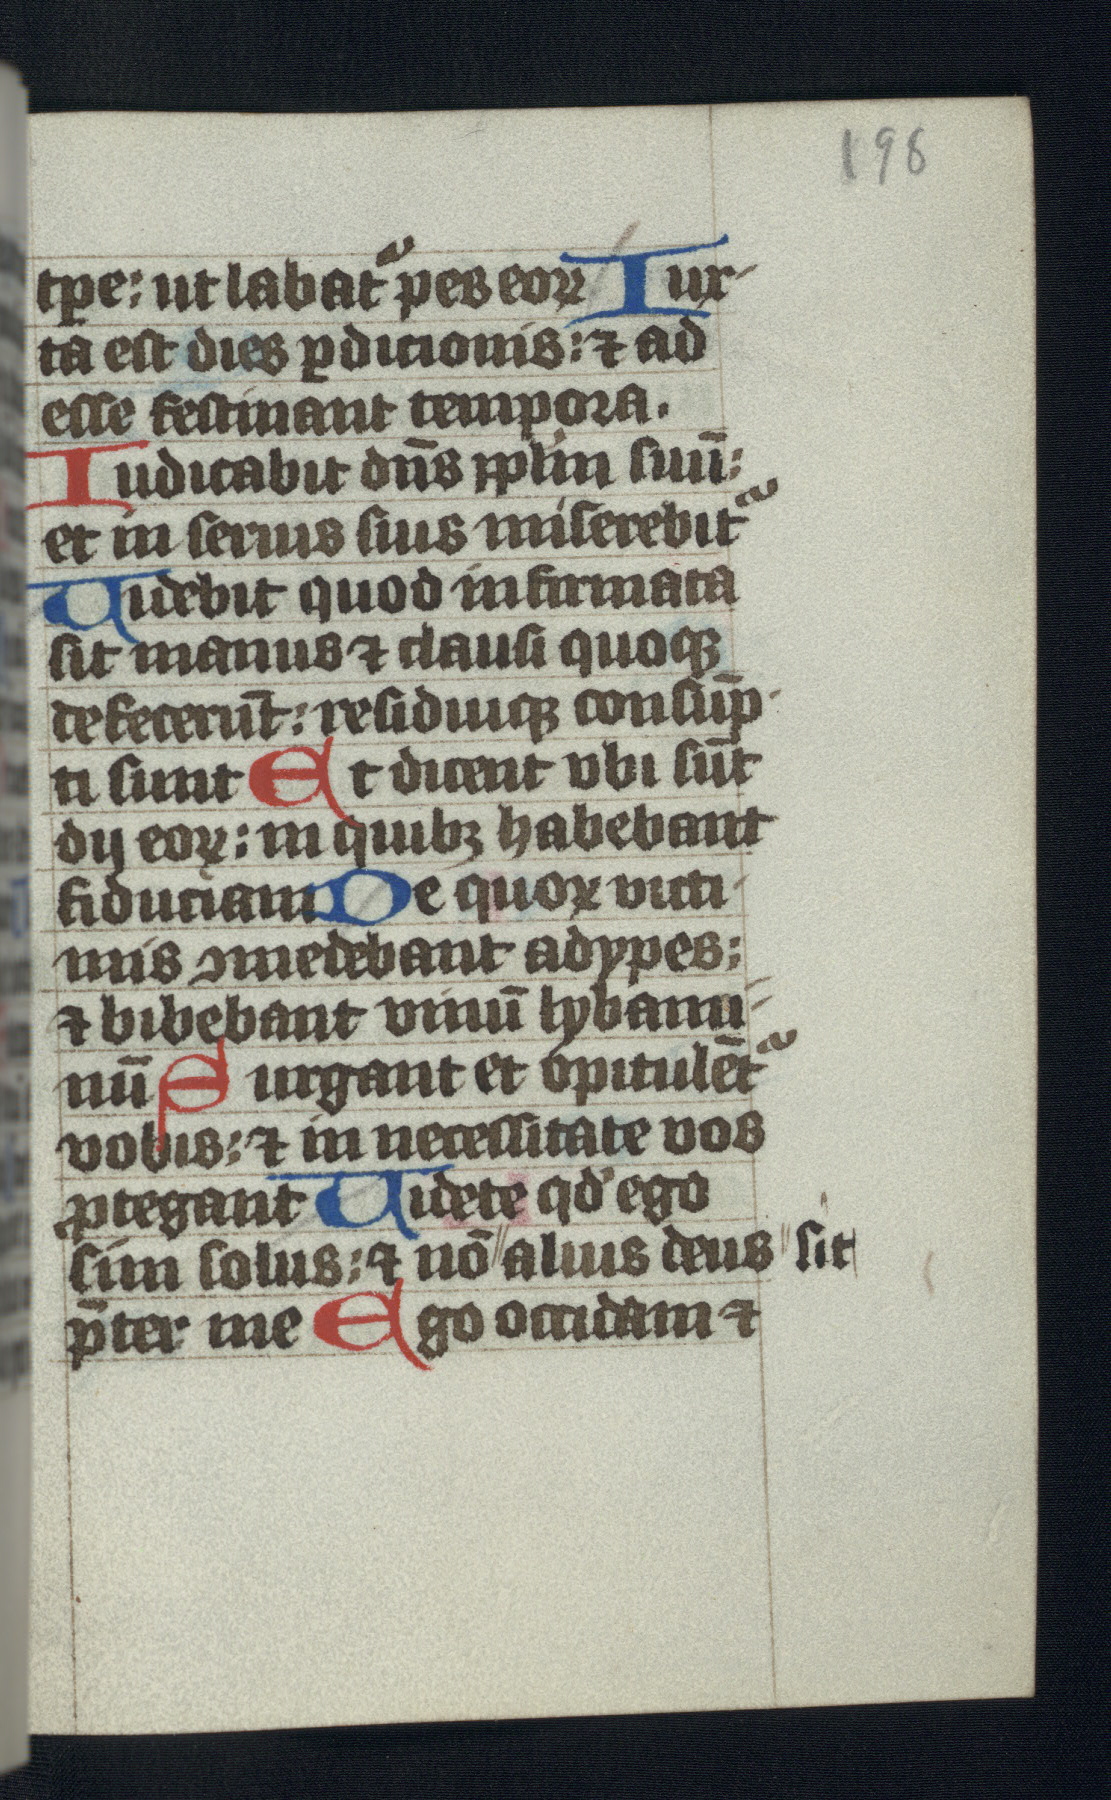 198
tp̱e: ut labat᷑ pes eoꝝ Iux-
ta est dies ꝑdicionis: ⁊ ad
esse festinant tempora.
Iudicabit dn̄s pplm̄ suū:
et in seruis suis miserebit᷑
Videbit quod infirmata
sit manus ⁊ clausi quoqꝫ
defecerūt: residuiqꝫ consūp-
ti sunt Et dicent vbi sūt
dij eoꝝ: in quibꝫ habebant
fiduciam De quoꝝ victi-
mis ꝯmedebant adypes:
⁊ bibebant vinū lybami-
nū Surgant et opitulēt᷑
vobis: ⁊ in necessitate vos
ꝓtegant Videte qd' ego
sim solus: ⁊ nō alius deus sit
p̄ter me Ego occidam ⁊